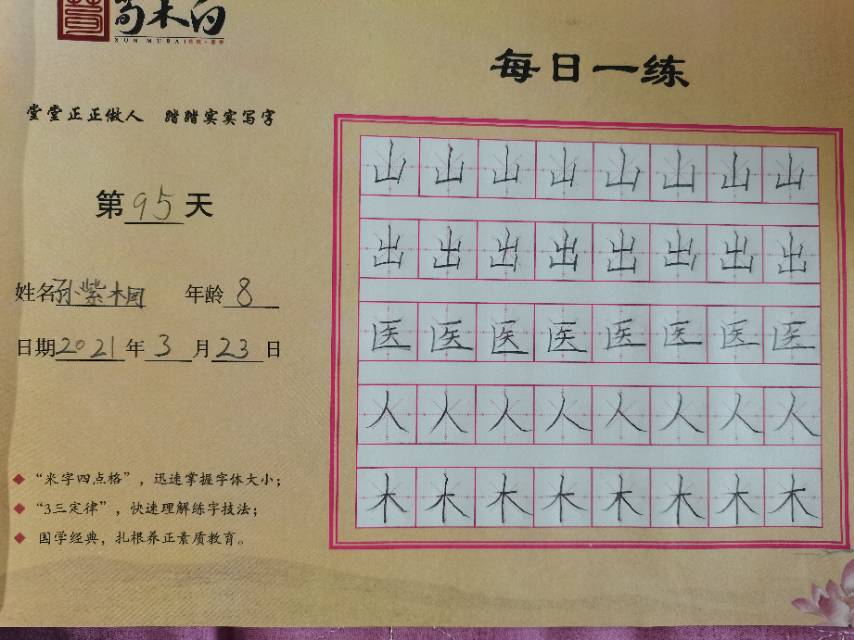 荀木白
XUN MUBAI
每日一练
堂堂正正做人 踏踏实实写字
第95天
姓名孙紫桐 年龄8
日期2021年3月23日
山山山山山山山山
出出出出出出出出
医医医医医医医医
人人人人人人人人
木木木木木木木木
◆ “米字四点格”，迅速掌握字体大小；
◆ “3三定律”，快速理解练字技法；
◆ 国学经典，扎根养正素质教育。